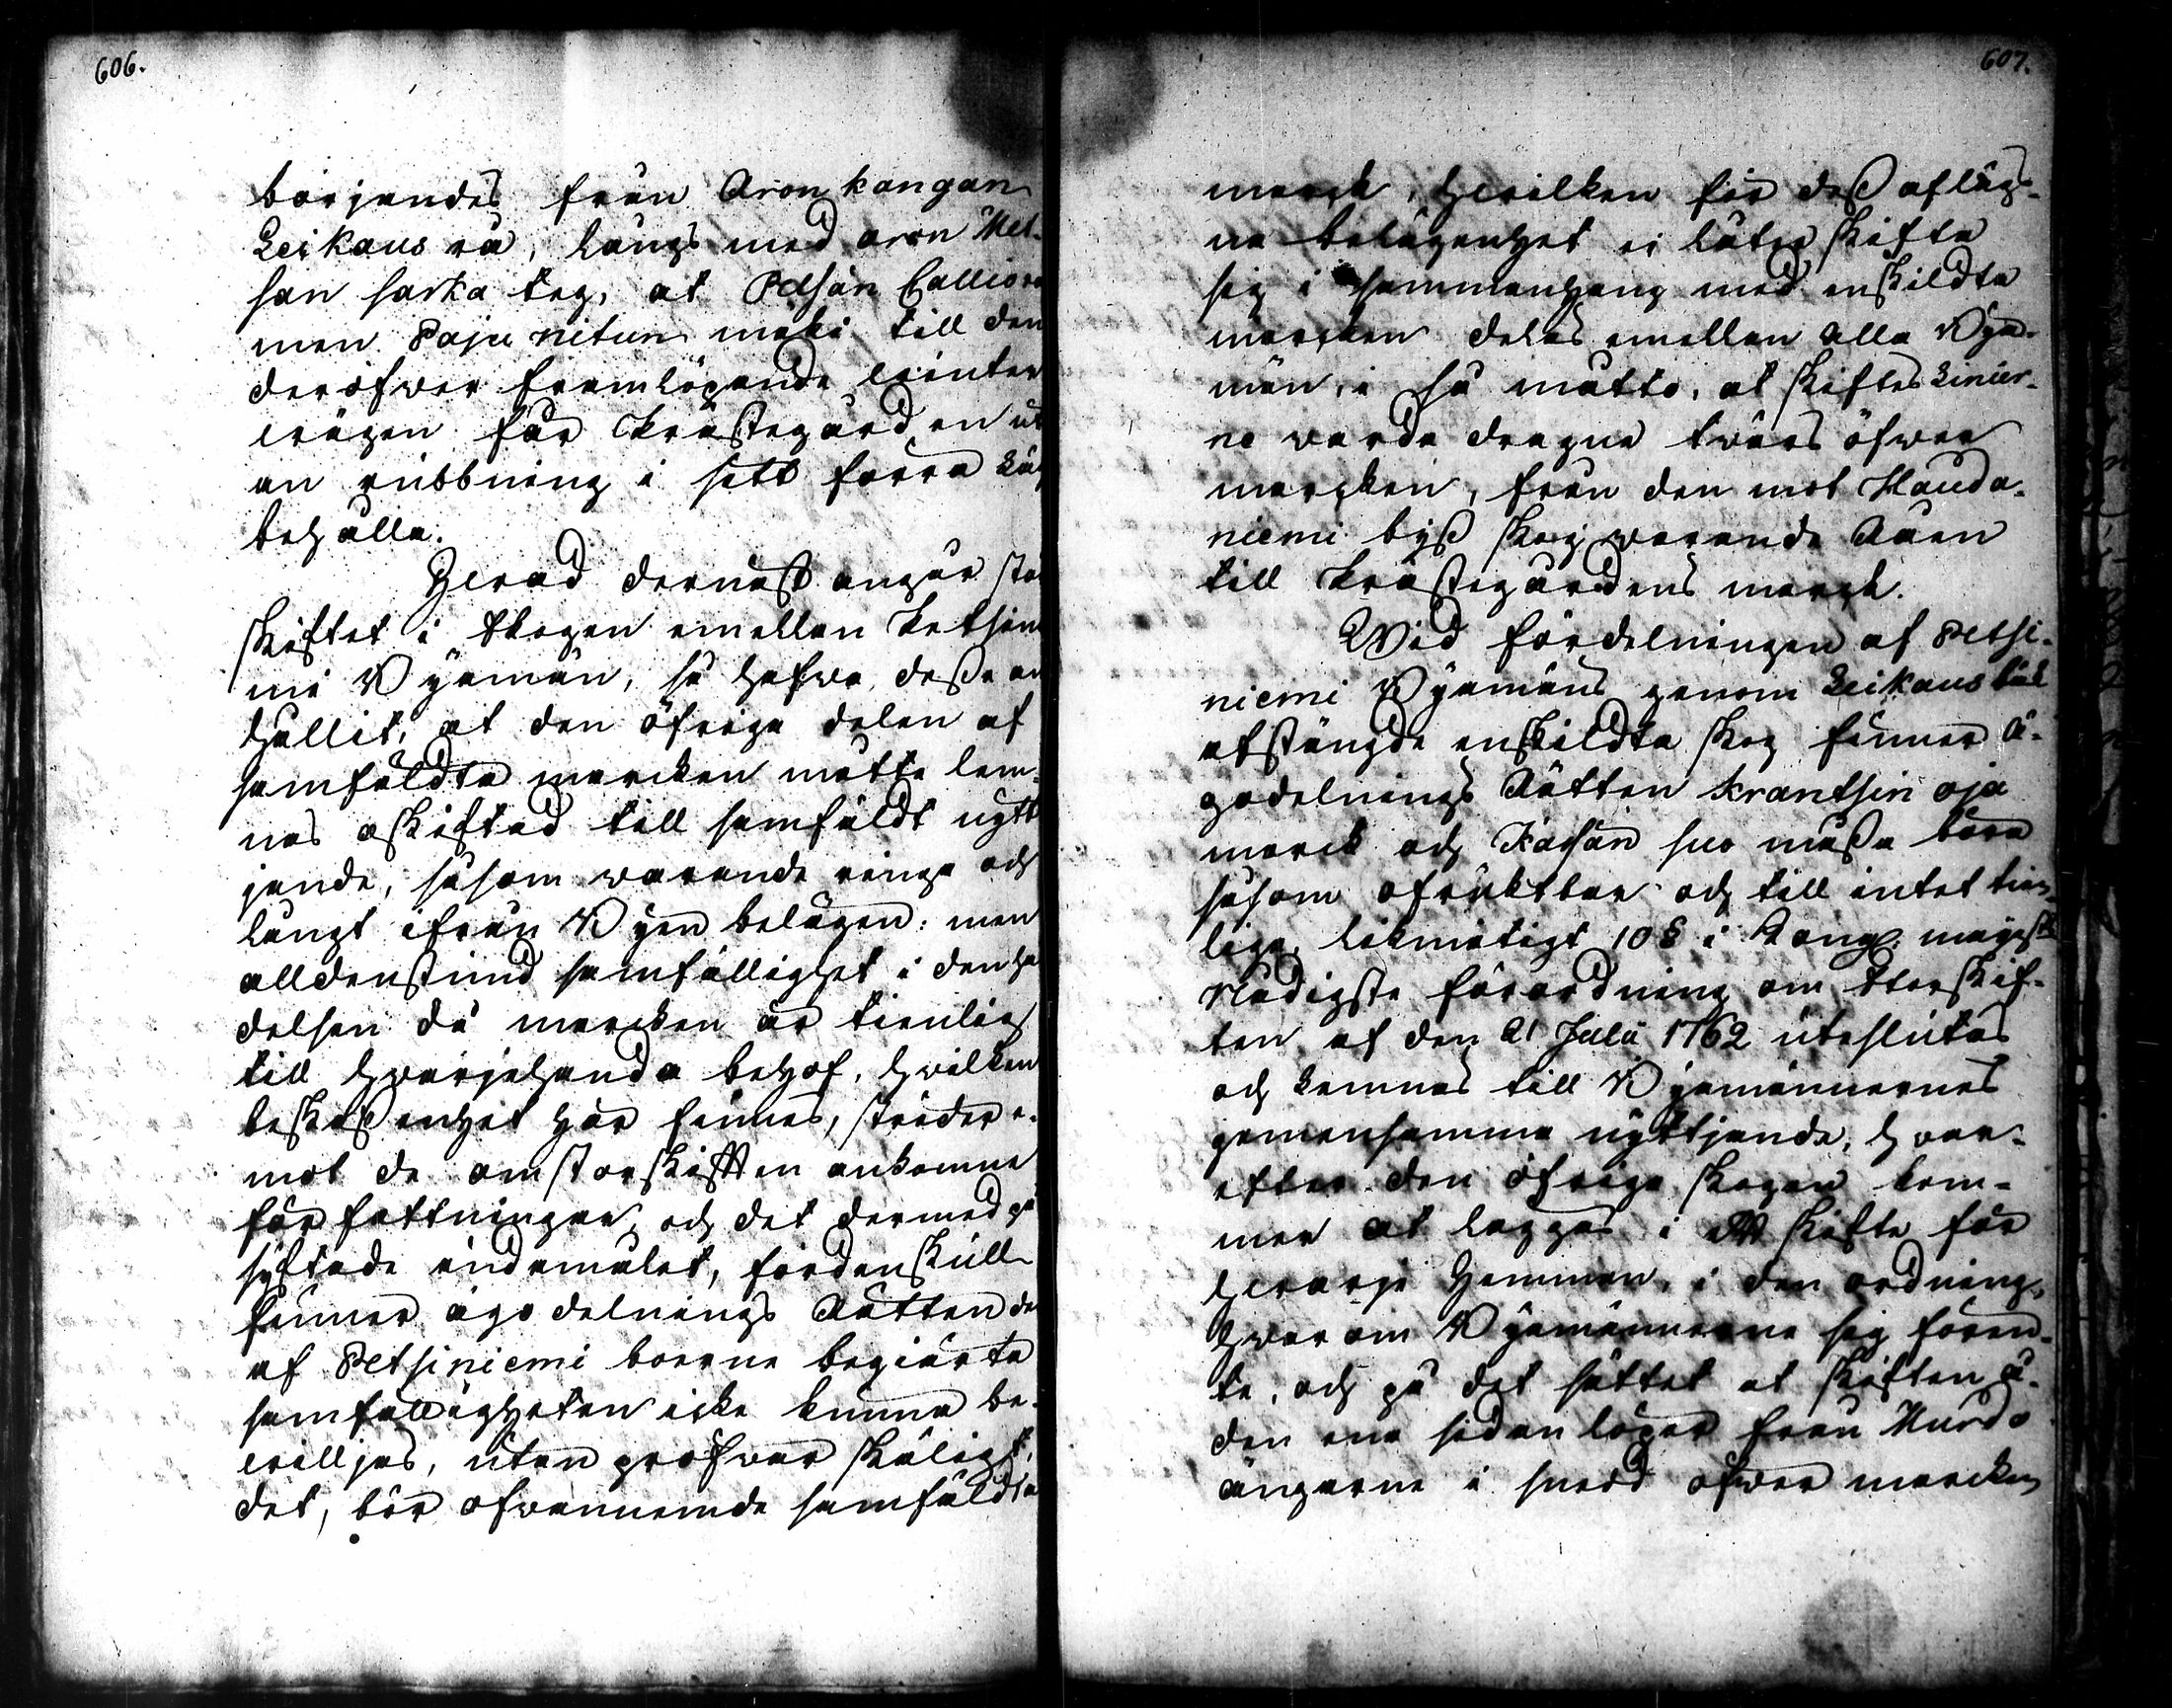 606.
börjandes från Aron kangan
Leikaus rå, längs med aron Met-
san sarka teg, at Petsän Callio
men Paju nitun mäki till den
deröfwer framlöpande winter
wägen får Prästegården ut
an rubbning i sitt förra läge
behålla.
Hwad dernäst angår stor
skiftet i skogen emellan Petsinie
mi Byamän, så hafwa desse an
hållit, at den öfriga delen af
samfäldta marcken måtte lem-
nas oskiftad till samfäldt nytt
jande, såsom warande ringa och
långt ifrån Byen belägen: men
alldenstund samfällighet i den hän
delsen då marcken är tienlig
till hwarjehanda behof, hwilken
beskaffenhet här finnes, strider e-
mot de om storskiften ankomne
författningar, och det dermed på
syftade ändamålet, fördenskull
finner ägodelnings Rätten den
af Petsiniemi boerne begiärta
samfälligheten icke kunna be-
willias, utan pröfwar skäligt,
det, bör ofwannemde samfäldta
607.
marck, hwilken för dess aflägs-
na belägenhet ei låter skifta
sig i sammanhang med enskildta
marcken delas emellan alla Bya-
män, i så matto, at skiftes Linier-
ne warda dragne twärs öfwer
marcken, från den mot Hauda-
niemi bys skog warande Råen
till Prästegårdens marck.
Wid fördelningen af Petsi-
niemi Byamäns genom Leikaus bäk
afstängde enskildta skog finner ä-
godelnings Rätten Krantsin oja
marck och suo måssa böra
såsom ofruktbar och till intet tien-
liga, likmätigt 10 § i Kongl. maij:ts
Nådigste förordning om storskif-
ten af den 21 Julii 1762 uteslutas
och lemnas till Byamännernes
gemensamma nyttjande, hwar-
efter den öfriga skogen kom-
mer at läggas i ett skifte för
hwarje Hemman, i den ordning,
hwarom Byamännerne sig fören-
te, och på det sättet at skiften å
den ena sidan löper från Murdo
ängarne i snedd öfwer marcken